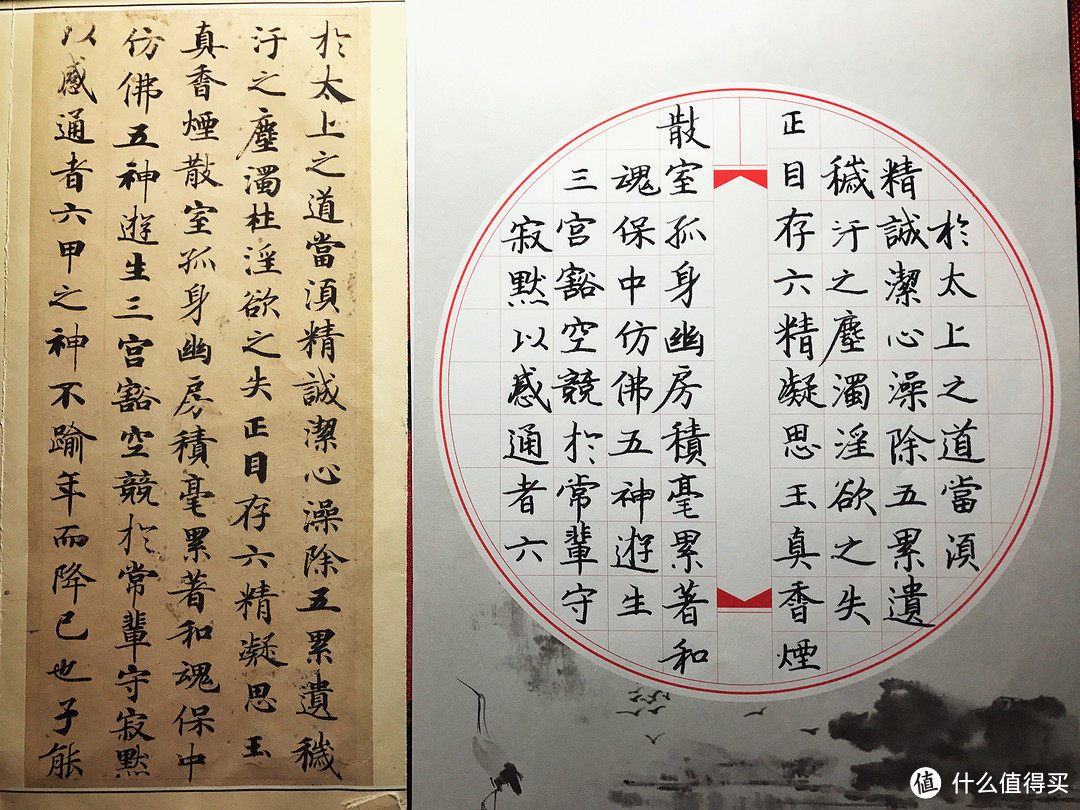 於太上之道當須精誠潔心澡除五累遺穢
汙之塵濁杜淫欲之失正目存六精凝思玉
真香煙散室孤身幽房積毫累著和魂保中
仿佛五神遊生三宮豁空競於常輩守寂默
以感通者六甲之神不踰年而降已也子能
於太上之道當須
精誠潔心澡除五累遺
穢汙之塵濁淫欲之失
正目存六精凝思玉真香煙
散室孤身幽房積毫累著和
魂保中仿佛五神遊生
三宮豁空競於常輩守
寂默以感通者六
值 什么值得买